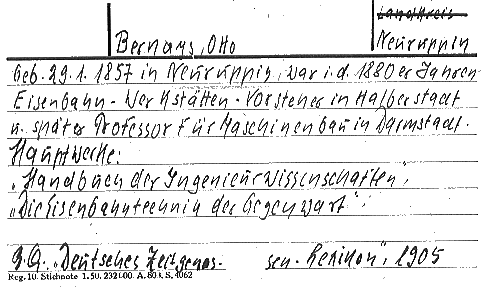 Landkreis
Bernays, Otto
Neuruppin
Geb. 29.1.1857 in Neuruppin, war i.d. 1880er Jahren
Eisenbahn-Werkstätten-Vorsteher in Halberstadt
u. später Professor für Maschinenbau in Darmstadt.
Hauptwerke:
„Handbuch der Ingenieurwissenschaften",
„Die Eisenbahntechnik der Gegenwart",
z.Q. „Deutsches Zeitgenos- sen-Lexikon", 1905
Reg. 10. Stichnote 1. 50. 232100. A. 80 k. S. 4062